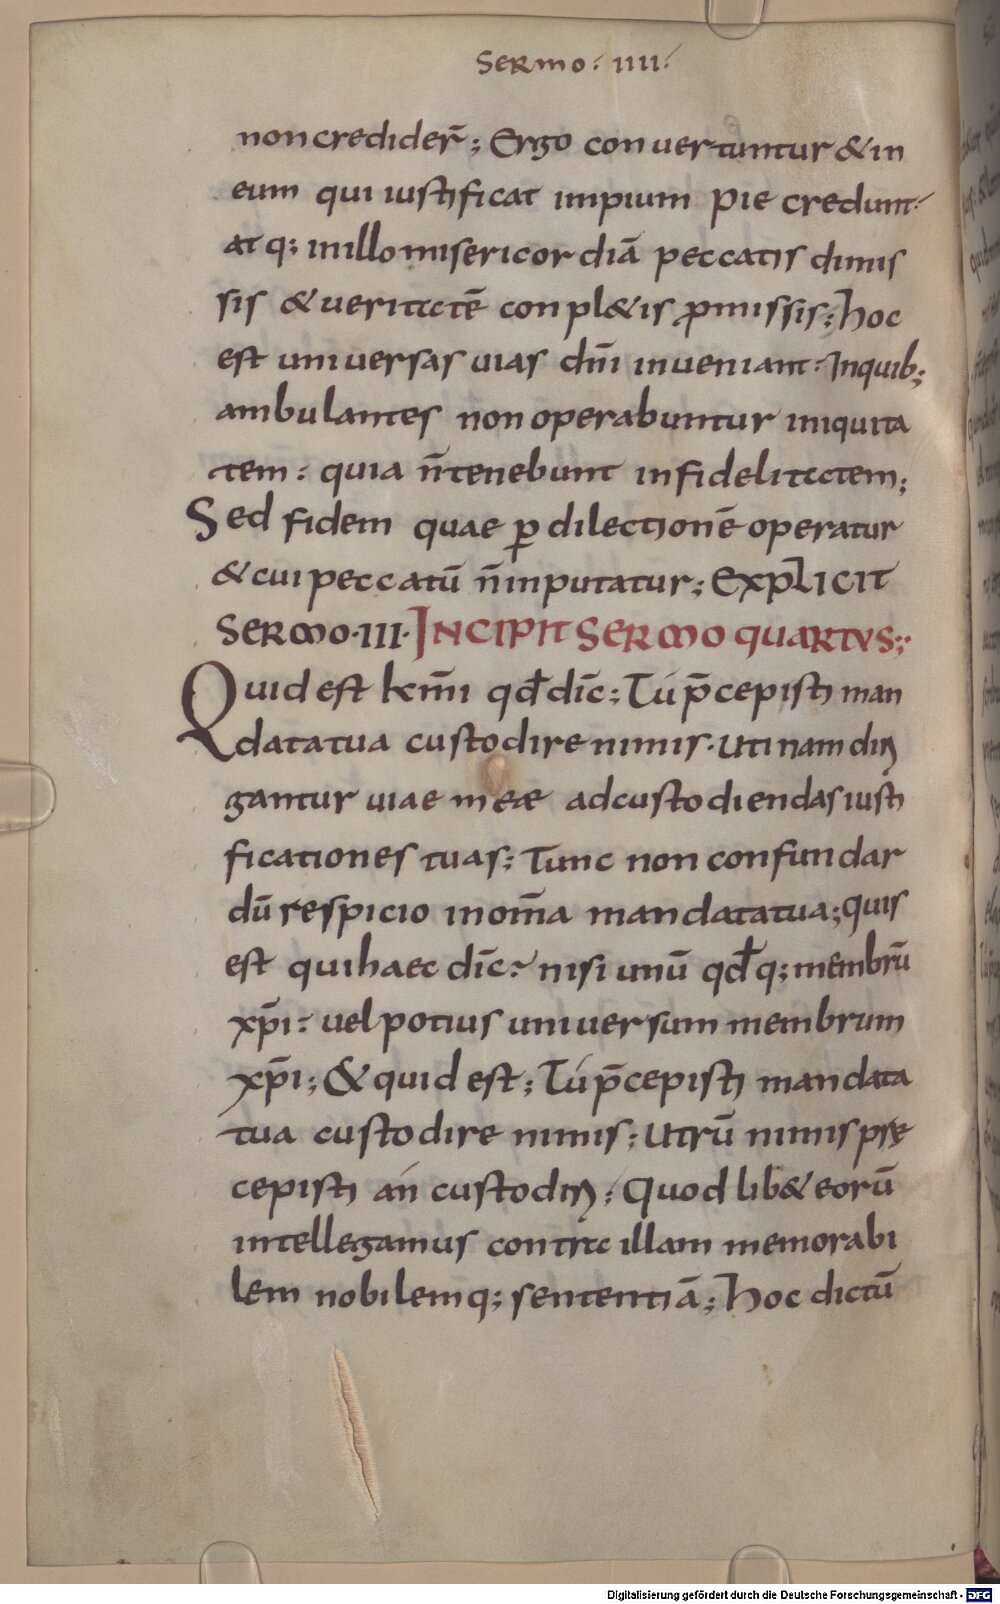 Sermo· IIII·
non credider̄; Ergo convertuntur & in
eum qui iustificat impium pie credunt·
atq; in illo misericordiā peccatis dimis
sis & veritatē conpl&is ꝓmissis; hoc
est universas vias dn̄i inveniant· In quib;
ambulantes non operabuntur iniquita
tem: quia n̄ tenebunt infidelitatem;
Sed fidem quae ꝑ dilectionē operatur
& cui peccatū n̄ inputatur; Explicit
Sermo·III· Incipit Sermo quartus;
Quid est km̄i qđ dīc; Tú p̄cepisti man
data tua custodire nimis· utinam diri
gantur viae meae ad custodiendas iusti
ficationes tuas; Tunc non confundar
dū respicio in om̄a mandata tua; quis
est qui haec dīc? nisi unū qđq; membrū
xp̄i: vel potius universum membrum
xp̄i; & quid est; Tú p̄cepisti mandata
tua custodire nimis; Utrū nimis prę
cepisti án custodiri; Quod lib& eorū
intellegamus contra illam memorabi
lem nobilemq; sententiā; Hoc dictū
Digitalisierung gefördert durch die Deutsche Forschungsgemeinschaft - DFG